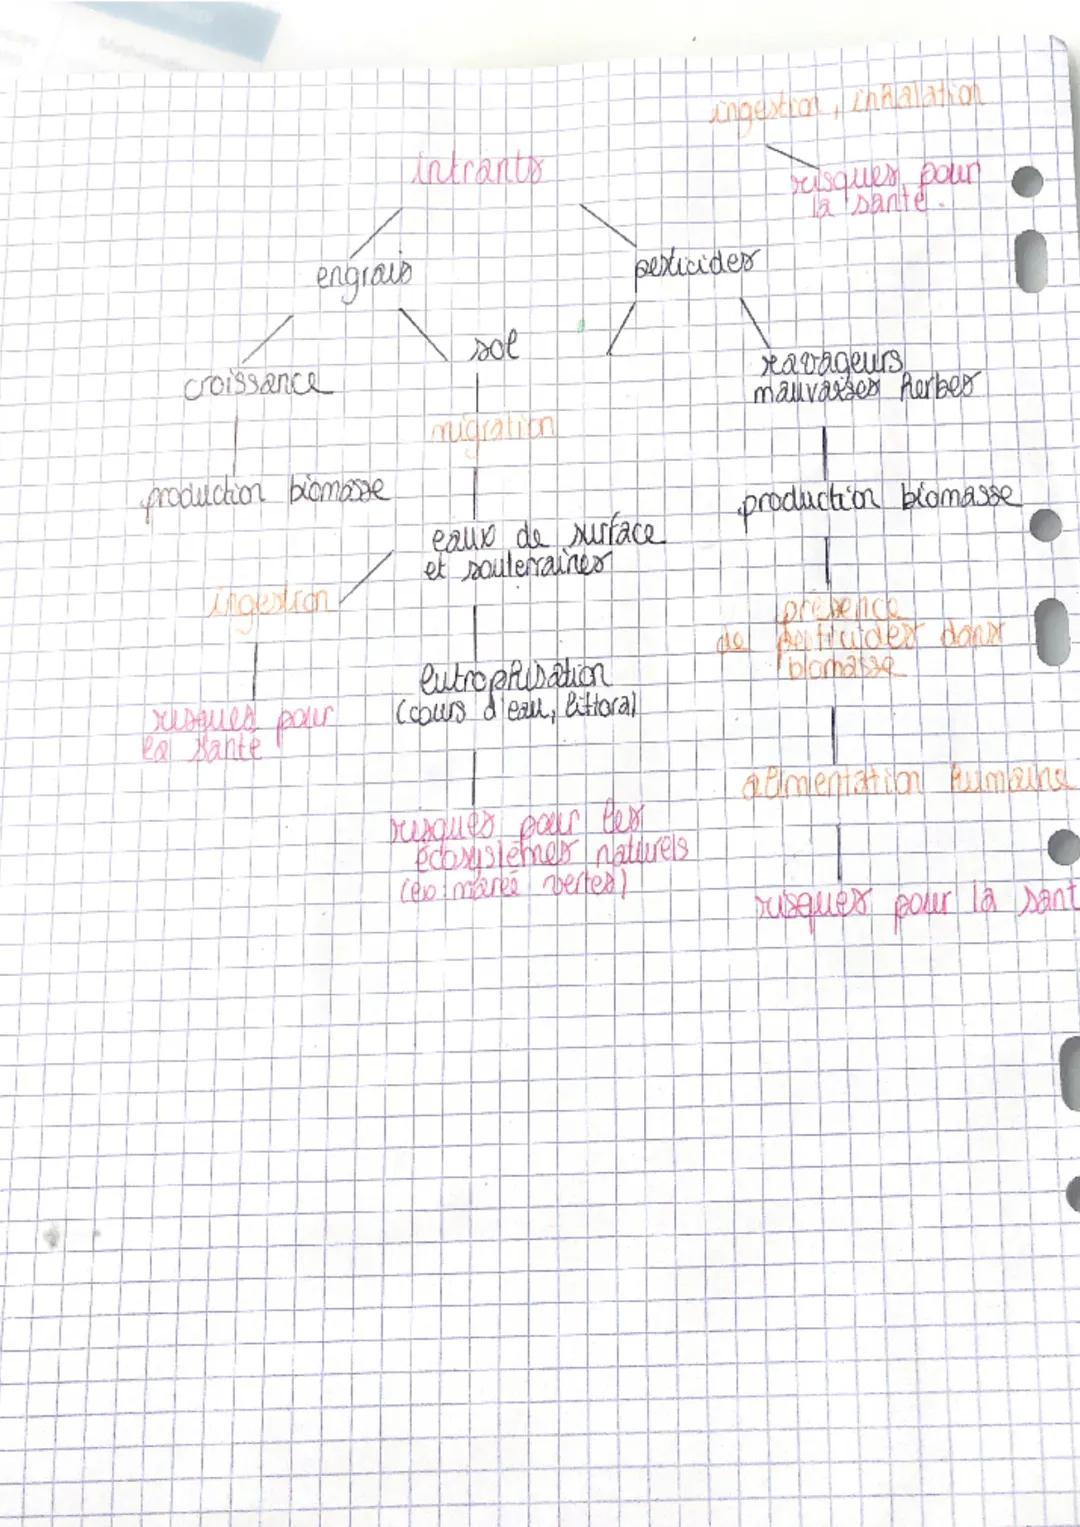 ingestion, inhalation
intrants
risques pour
la santé.
engrais
pesticides
sol
ravageurs,
mauvaises herbes
croissance
migration
production biomasse
production biomasse
eaux de surface
et souterraines
ingestion
présence
de pesticides dans
biomasse
eutrophisation
(cours d'eau, littoral)
risques pour
la santé
alimentation humaine
risques pour les
écosystèmes naturels
(ex: mareé vertes)
risques pour la sant